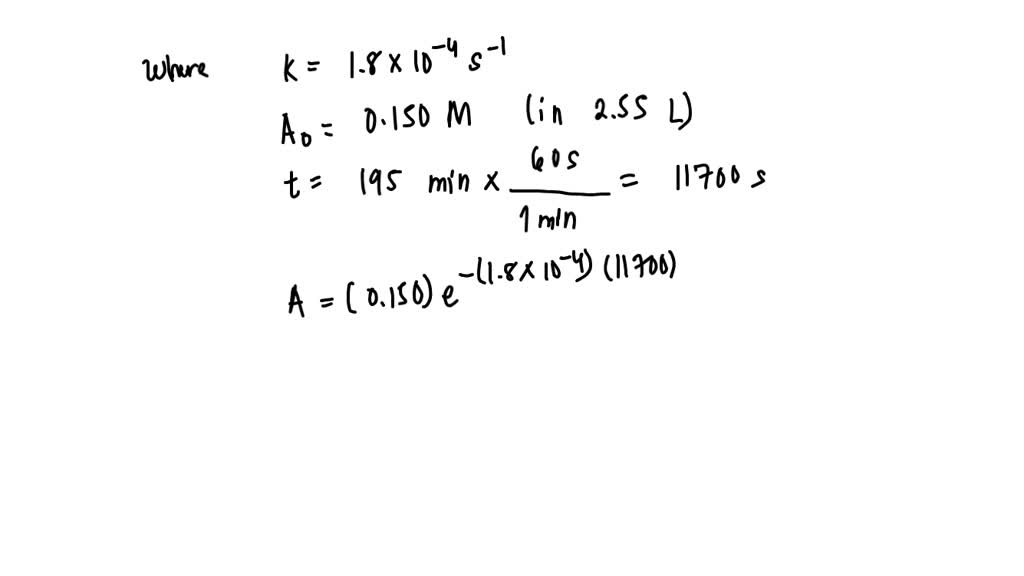 where K = 1.8 × 10⁻⁴ s⁻¹
A₀ = 0.150 M (in 2.55 L)
t = 195 min × 60s / 1 min = 11700 s
A = (0.150) e^-(1.8 × 10⁻⁴) (11700)